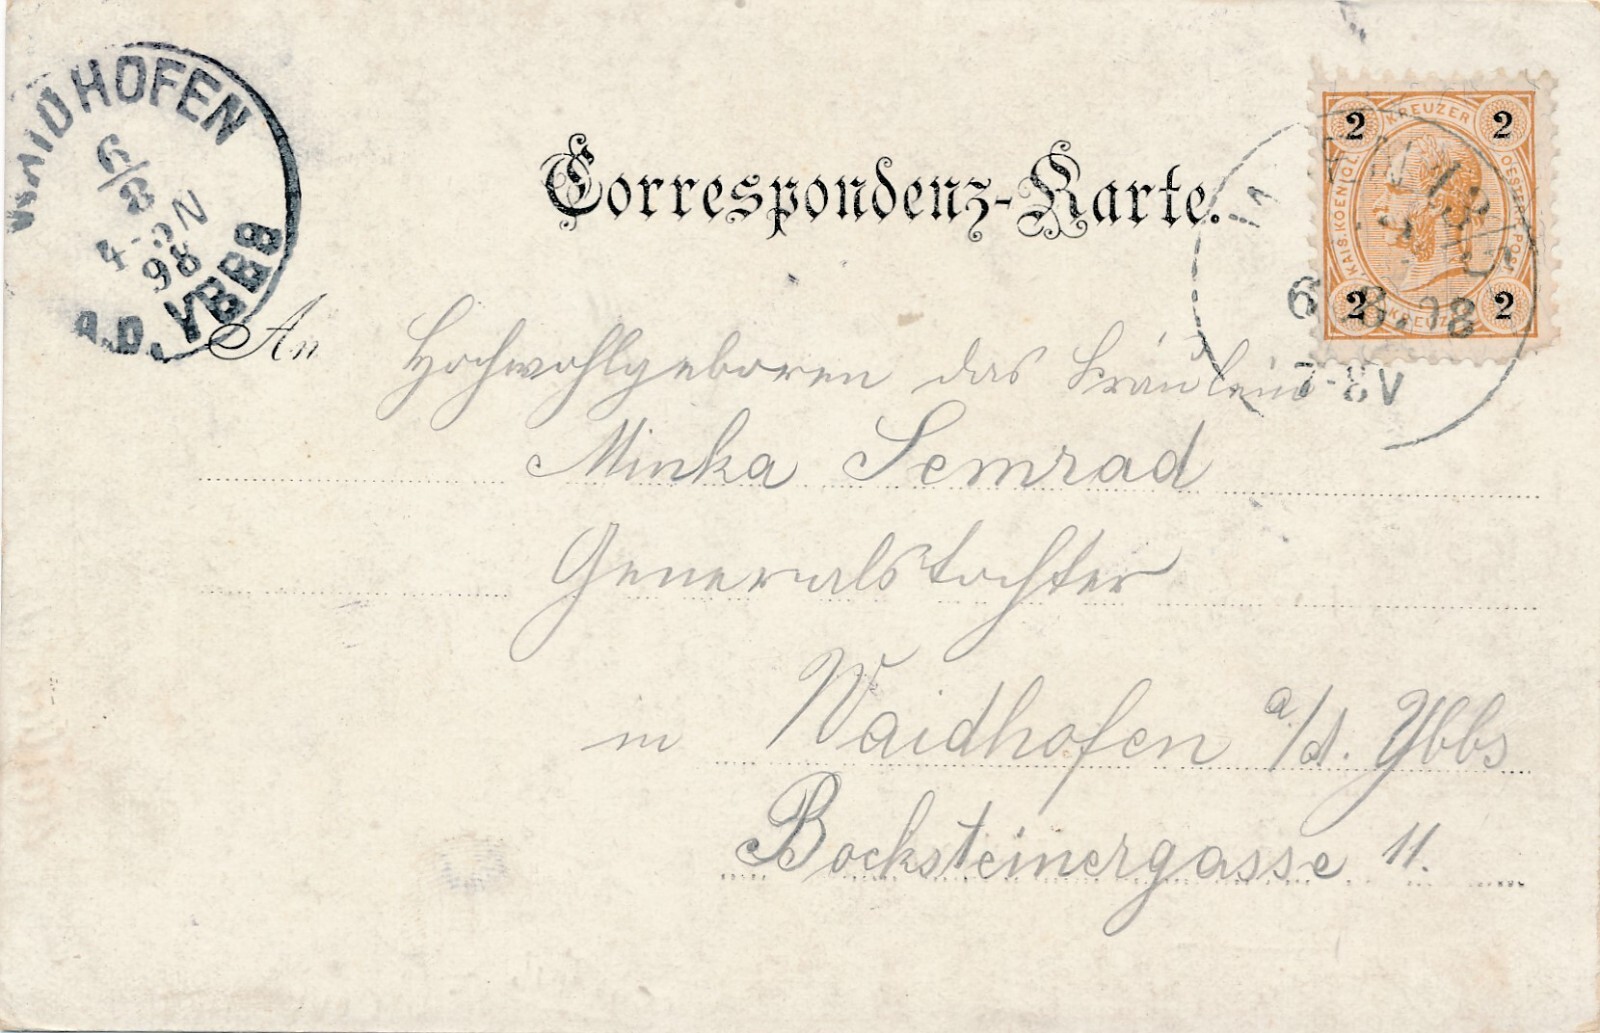 WAIDHOFEN
6/8
4-5N
98
A.D. YBBS
Correspondenz-Karte.
2 KREUZER 2
KAIS. KOENIGL. OESTERR. POST
2 KREUZER 2
WIEN
6. 8. 98
7-8V
An Hochwohlgeboren das Fräulein
Minka Semrad
Generalstochter
in Waidhofen a./d. Ybbs
Bocksteinergasse 11.